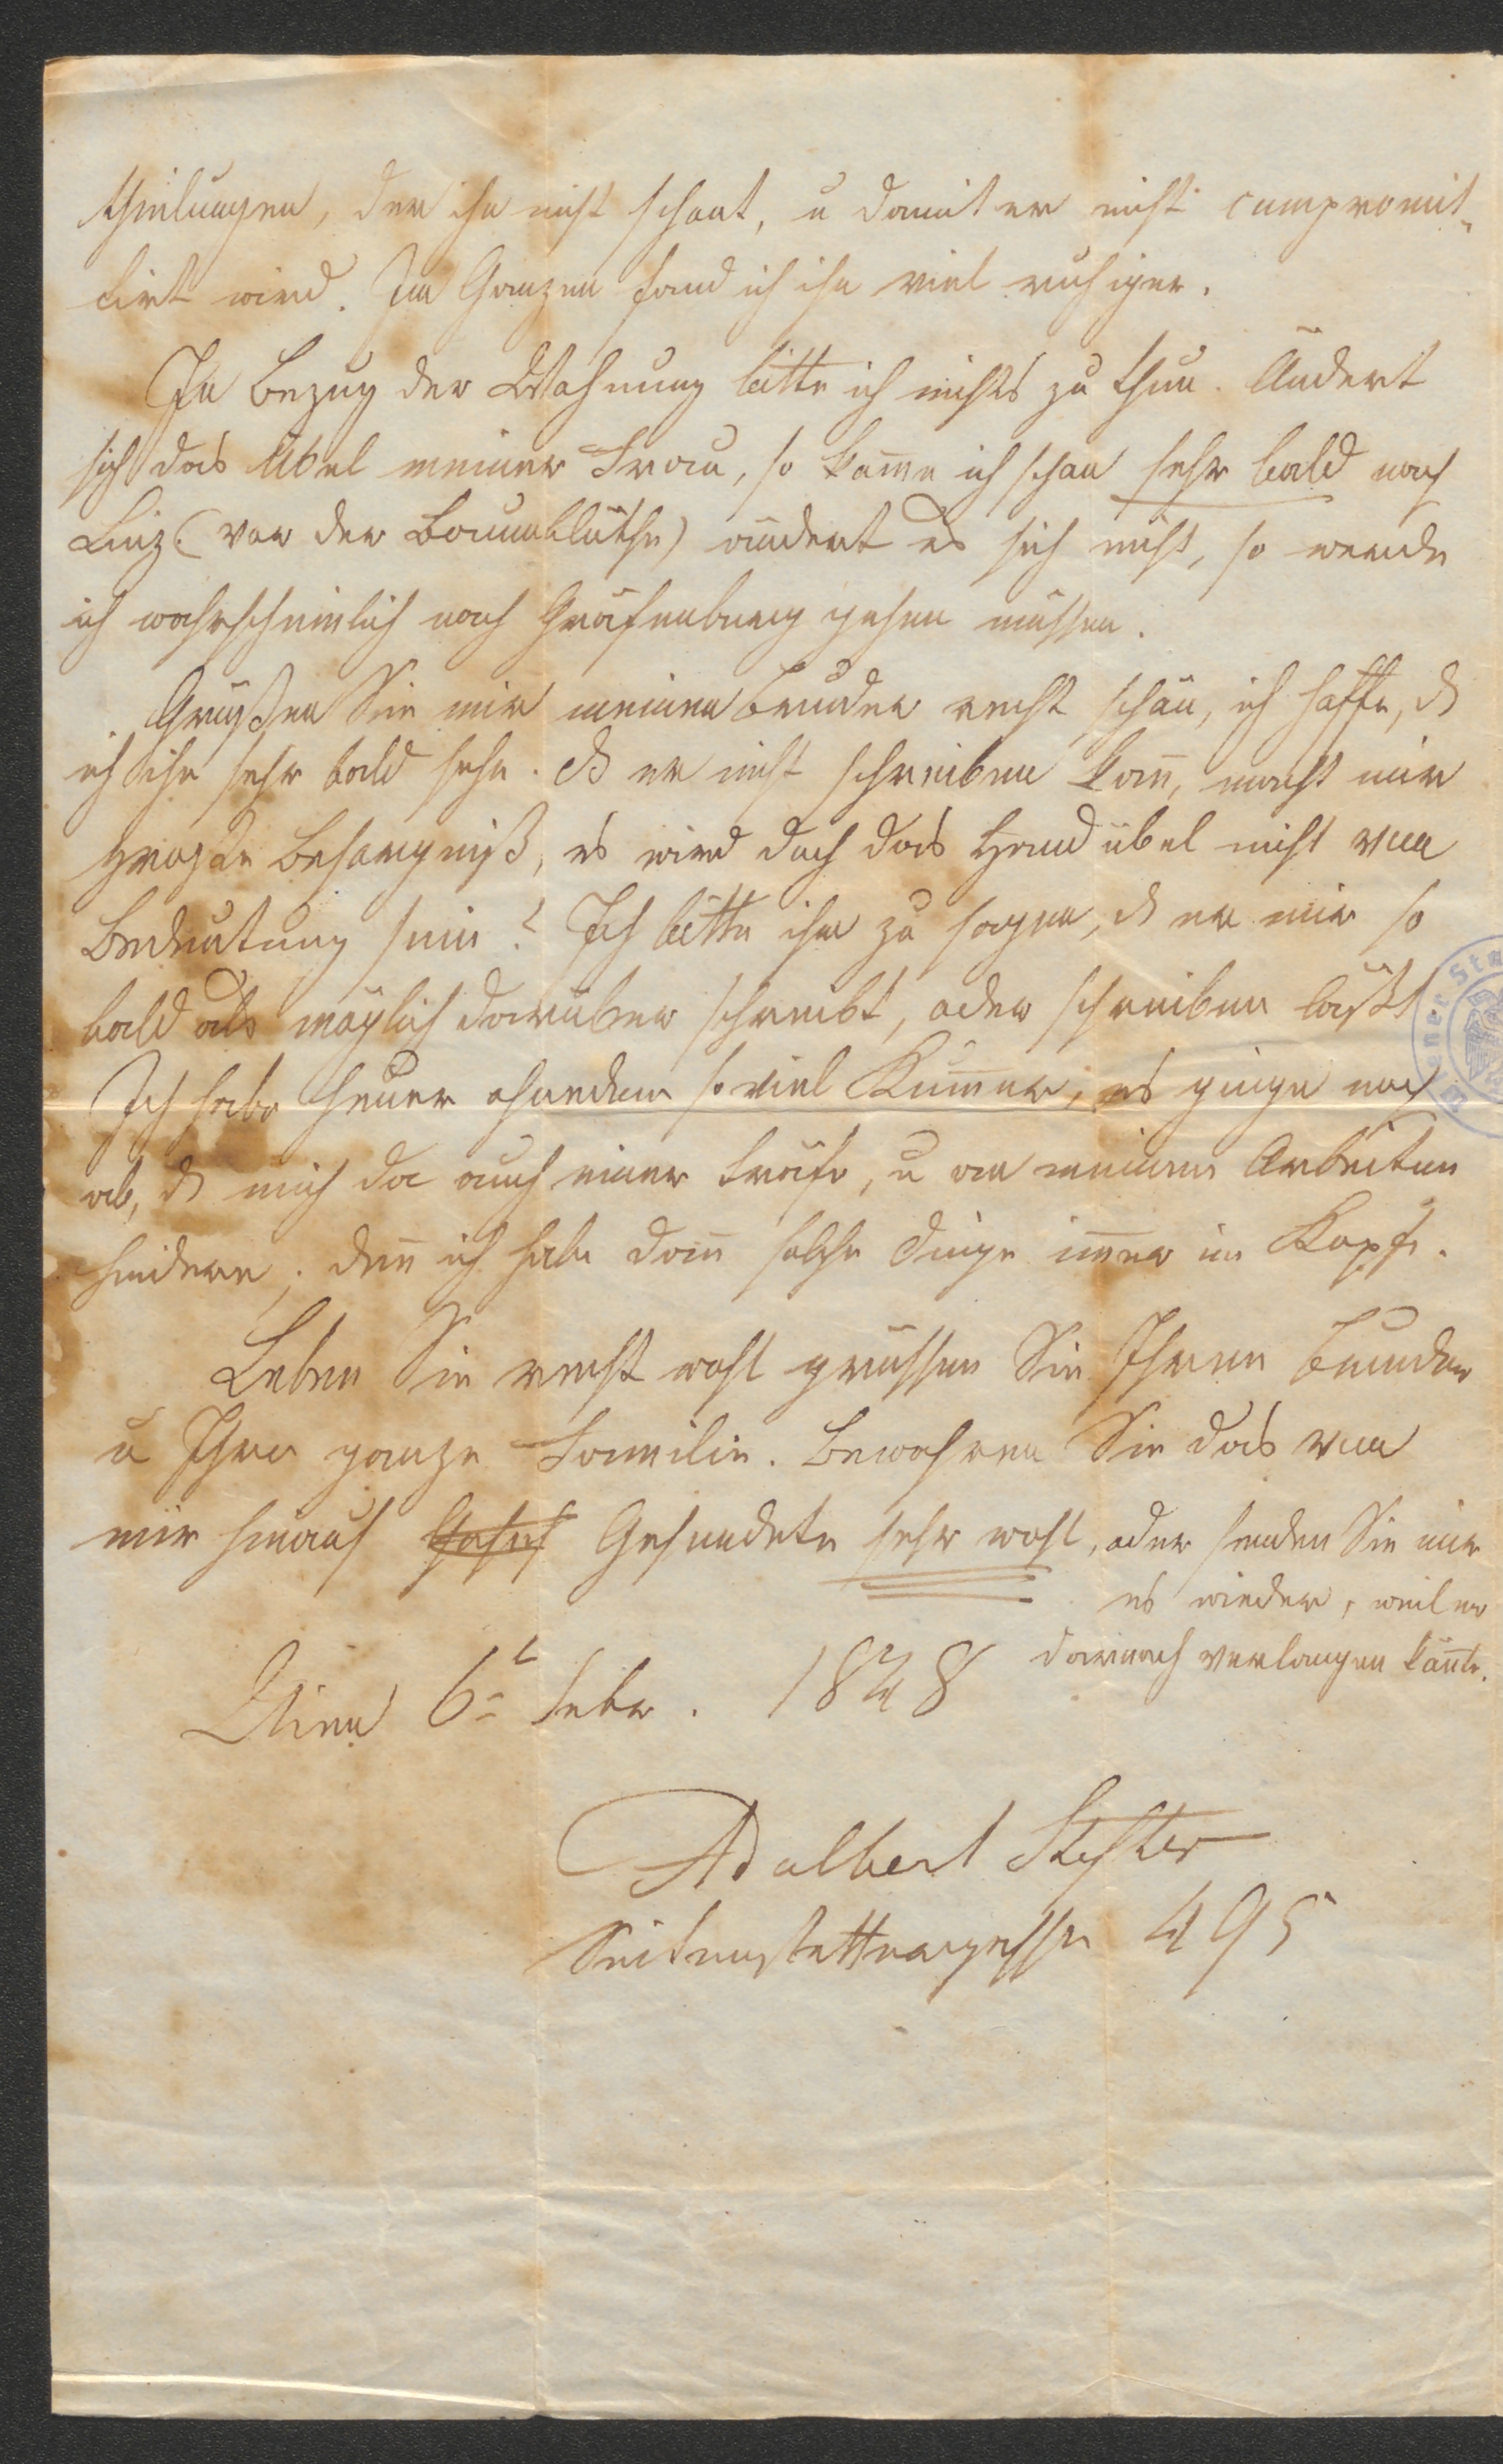 theilungen, der ihn nicht schont, u damit er nicht compromit-
tirt wird. Im Ganzen fand ich ihn viel ruhiger.
In Bezug der Wohnung bitte ich nichts zu thun. Ändert
sich das Übel meiner Frau, so kom̅e ich schon sehr bald nach
Linz (vor der Baumblüthe) ändert es sich nicht, so werde
ich wahrscheinlich nach Gräfenberg gehen müssen.
Grüßen Sie mir meinen Bruder recht schön, ich hoffe, ds
ich ihn sehr bald sehe. Ds er nicht schreiben kan̅, macht mir
große Besorgniß, es wird doch das Handübel nicht von
Bedeutung sein? Ich bitte ihn zu sagen, ds er mir so
bald als möglich darüber schreibt, oder schreiben läßt
Ich habe heuer ohnedem so viel Kum̅er, es ginge noch
ab, ds mich da auch einer träfe, u an meinen Arbeiten
hindere; den̅ ich habe dan̅ solche Dinge im̅er im Kopfe.
Leben Sie recht wohl grüssen Sie Ihren Bruder
u Ihre ganze Familie. Bewahren Sie das von
mir hinauf Gesendete sehr wohl, oder senden Sie mir
es wieder, weil er
darnach verlangen kön̅te.
Wien 6t Febr. 1848
Adalbert Stifter
Seitenstettengasse 495
Wiener Sta